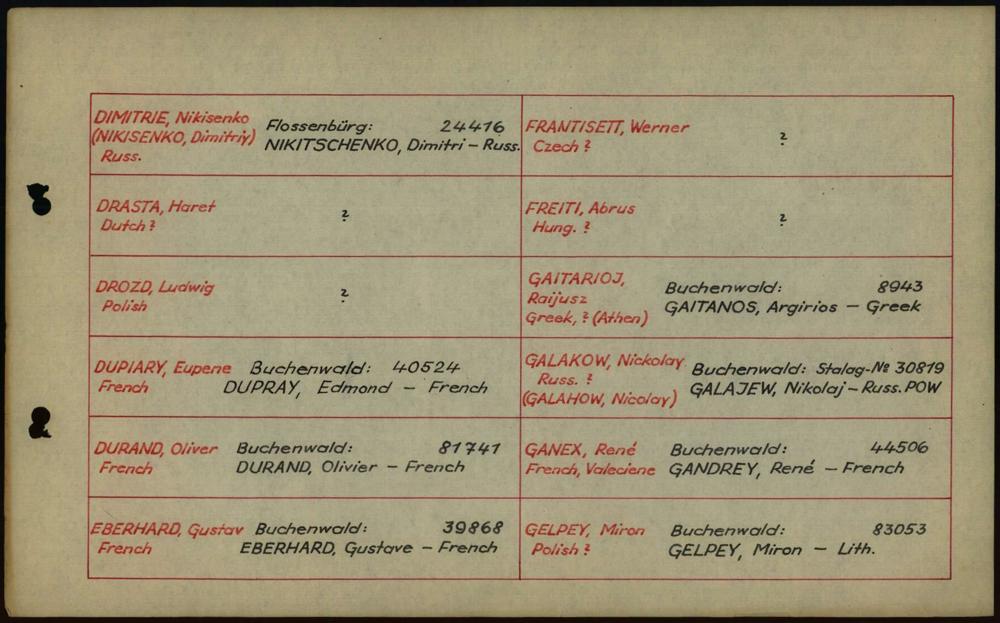 DIMITRIE, Nikisenko
(NIKISENKO, Dimitriy)
Russ.
Flossenbürg: 24416
NIKITSCHENKO, Dimitri – Russ.
FRANTISETT, Werner
Czech ?
?
DRASTA, Haret
Dutch ?
?
FREITI, Abrus
Hung. ?
?
DROZD, Ludwig
Polish
?
GAITARIOJ,
Raijusz
Greek, ? (Athen)
Buchenwald: 8943
GAITANOS, Argirios – Greek
DUPIARY, Eupene
French
Buchenwald: 40524
DUPRAY, Edmond – French
GALAKOW, Nickolay
Russ. ?
(GALAHOW, Nicolay)
Buchenwald: Stalag-№ 30819
GALAJEW, Nikolaj – Russ. POW
DURAND, Oliver
French
Buchenwald: 81741
DURAND, Olivier – French
GANEX, René
French, Valeciene
Buchenwald: 44506
GANDREY, René – French
EBERHARD, Gustav
French
Buchenwald: 39868
EBERHARD, Gustave – French
GELPEY, Miron
Polish ?
Buchenwald: 83053
GELPEY, Miron – Lith.